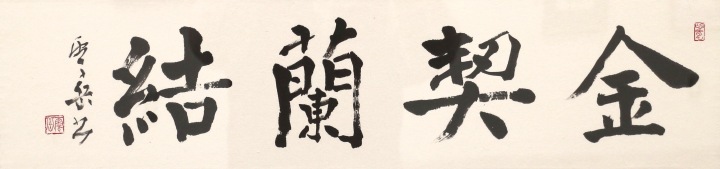 金契蘭結